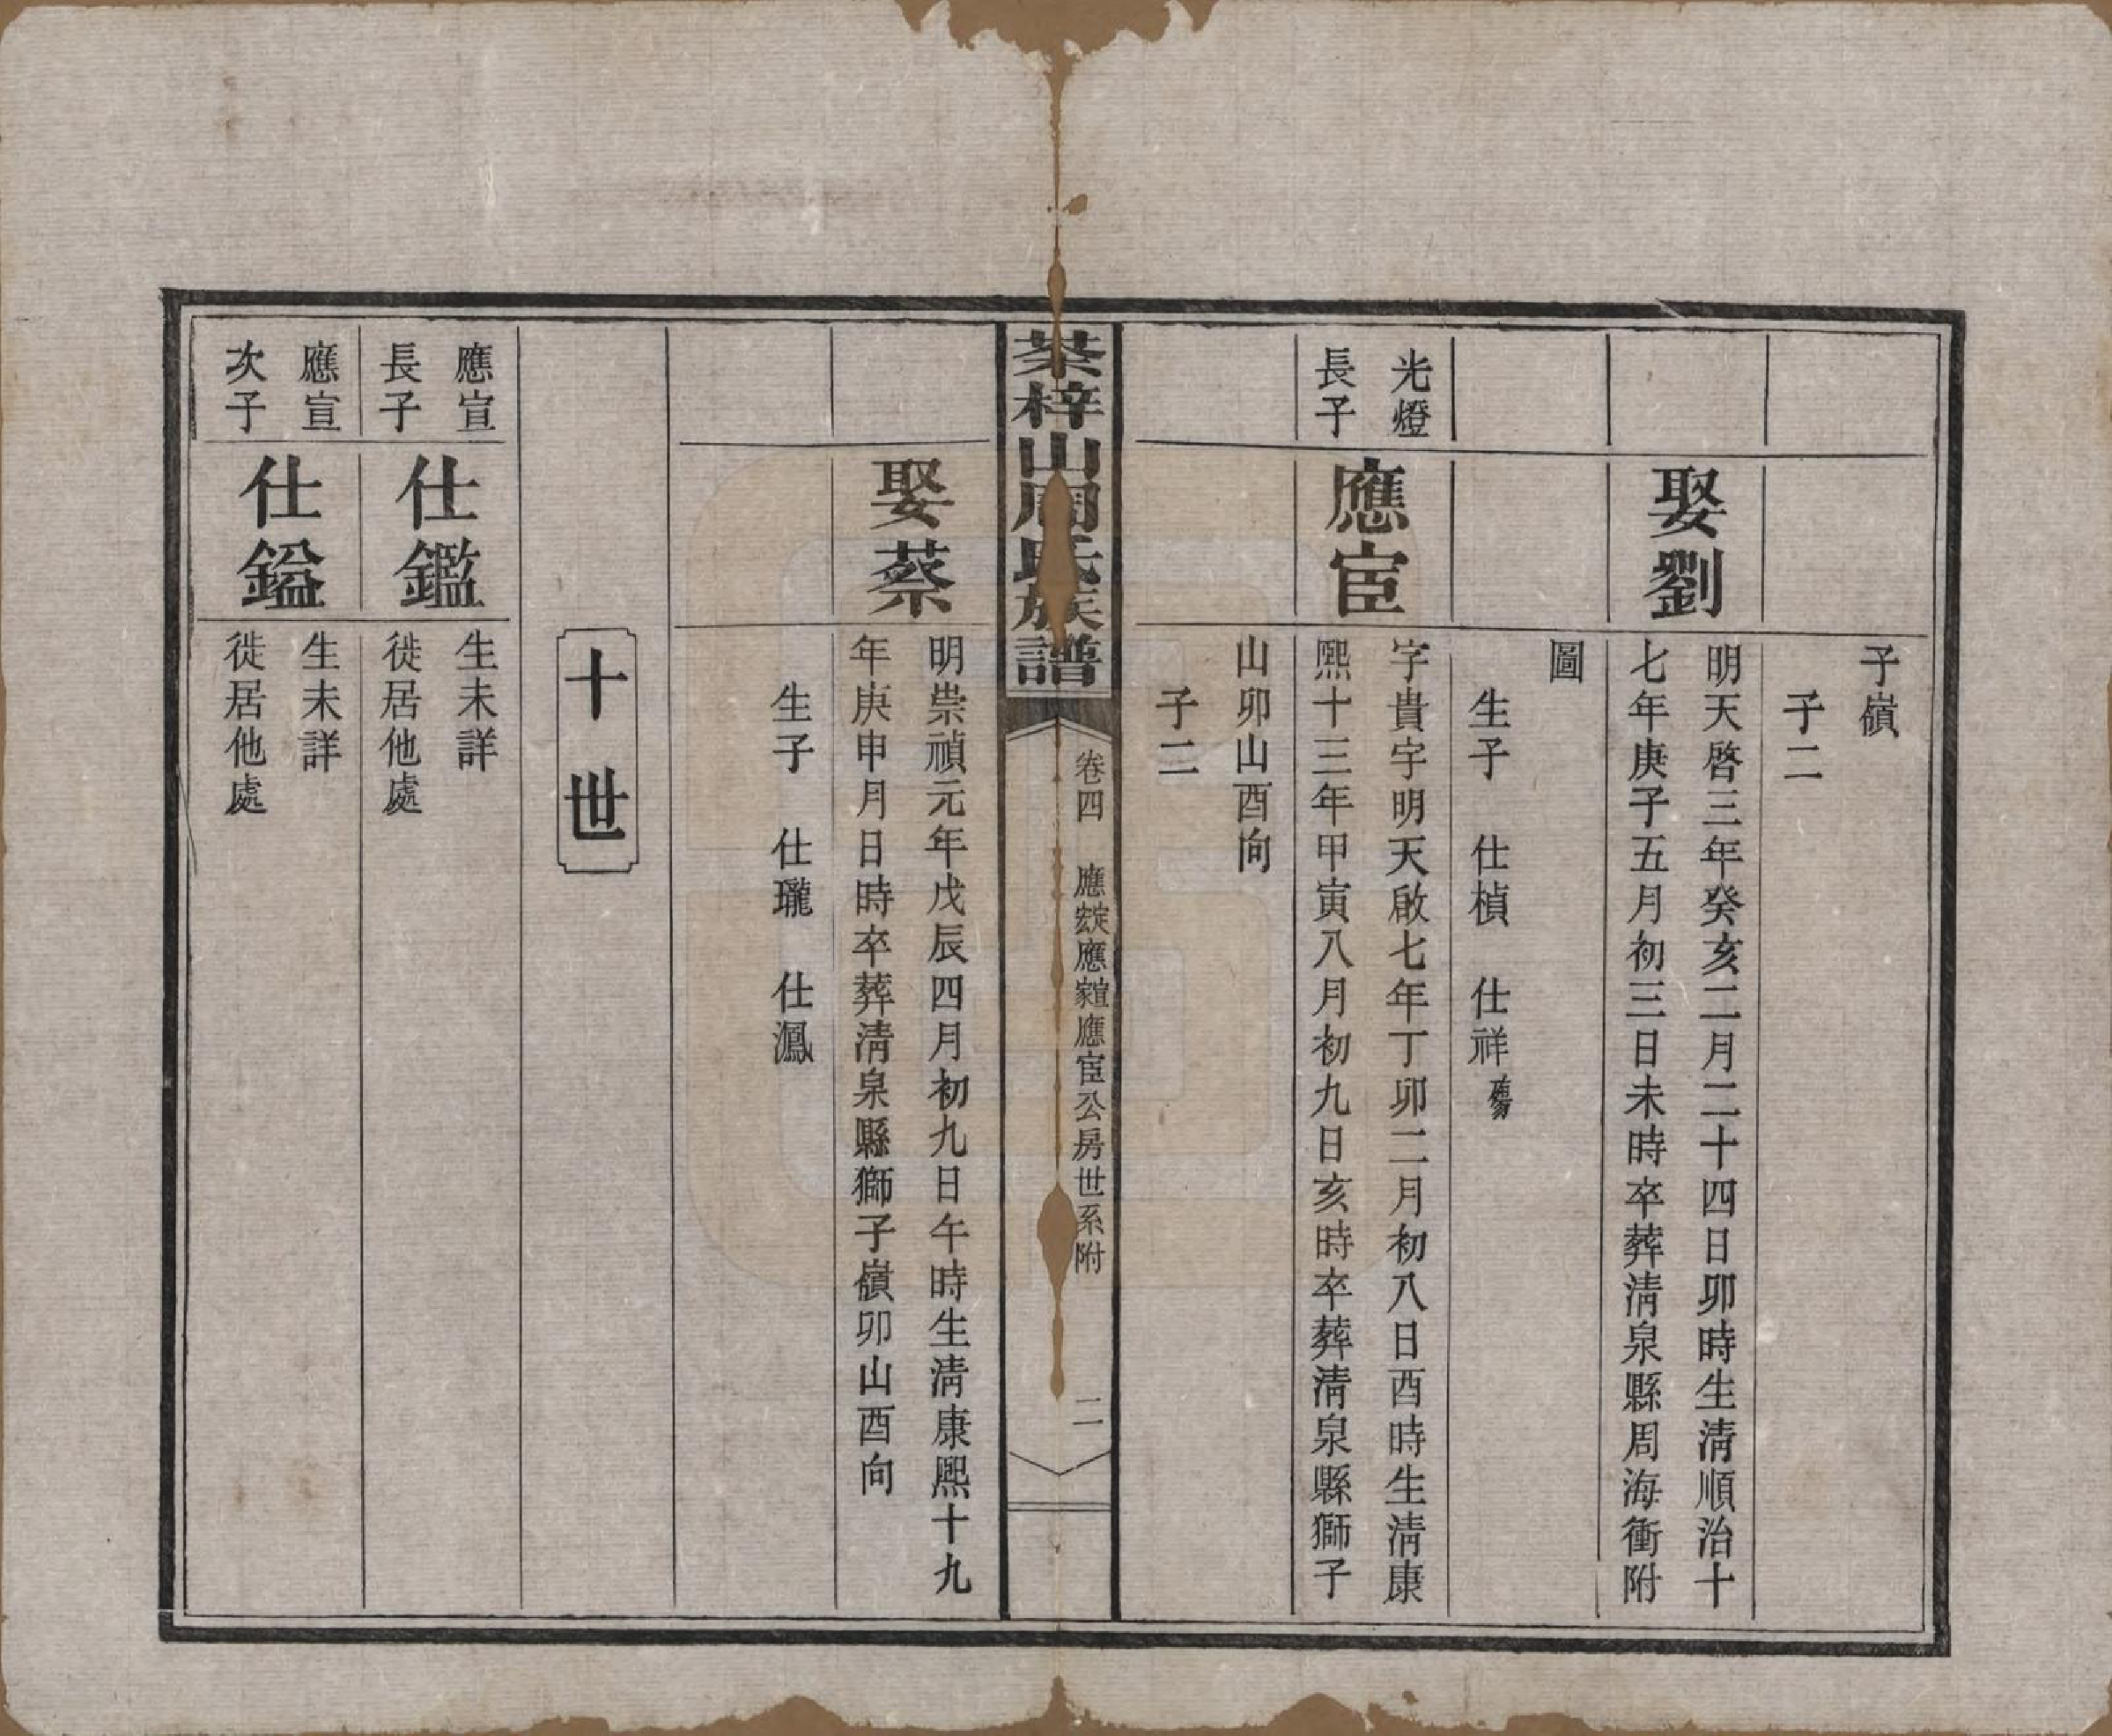 子嶺
子二
娶劉
明天啓三年癸亥二月二十四日卯時生清順治十
七年庚子五月初三日未時卒葬清泉縣周海衝附
圖
生子　仕楨　仕祥殤
光燈
長子
應宦
字貴宇明天啟七年丁卯二月初八日酉時生清康
熙十三年甲寅八月初九日亥時卒葬清泉縣獅子
山卯山酉向
子二
茶梓山周氏族譜
卷四　應宏應定應家應宣應宦公房世系附
二
娶蔡
明崇禎元年戊辰四月初九日午時生清康熙十九
年庚申月日時卒葬清泉縣獅子嶺卯山酉向
生子　仕瓏　仕鳳
十世
應宣
長子
仕鑑
生未詳
徙居他處
應宣
次子
仕鎰
生未詳
徙居他處